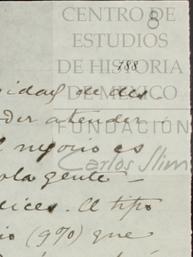 CENTRO DE
8
ESTUDIOS
DE HISTORIA
188
DE MEXICO
FUNDACIÓN
Carlos Slim
der atender
l negocio es
ola gente
dices. El tipo
io (9%) que